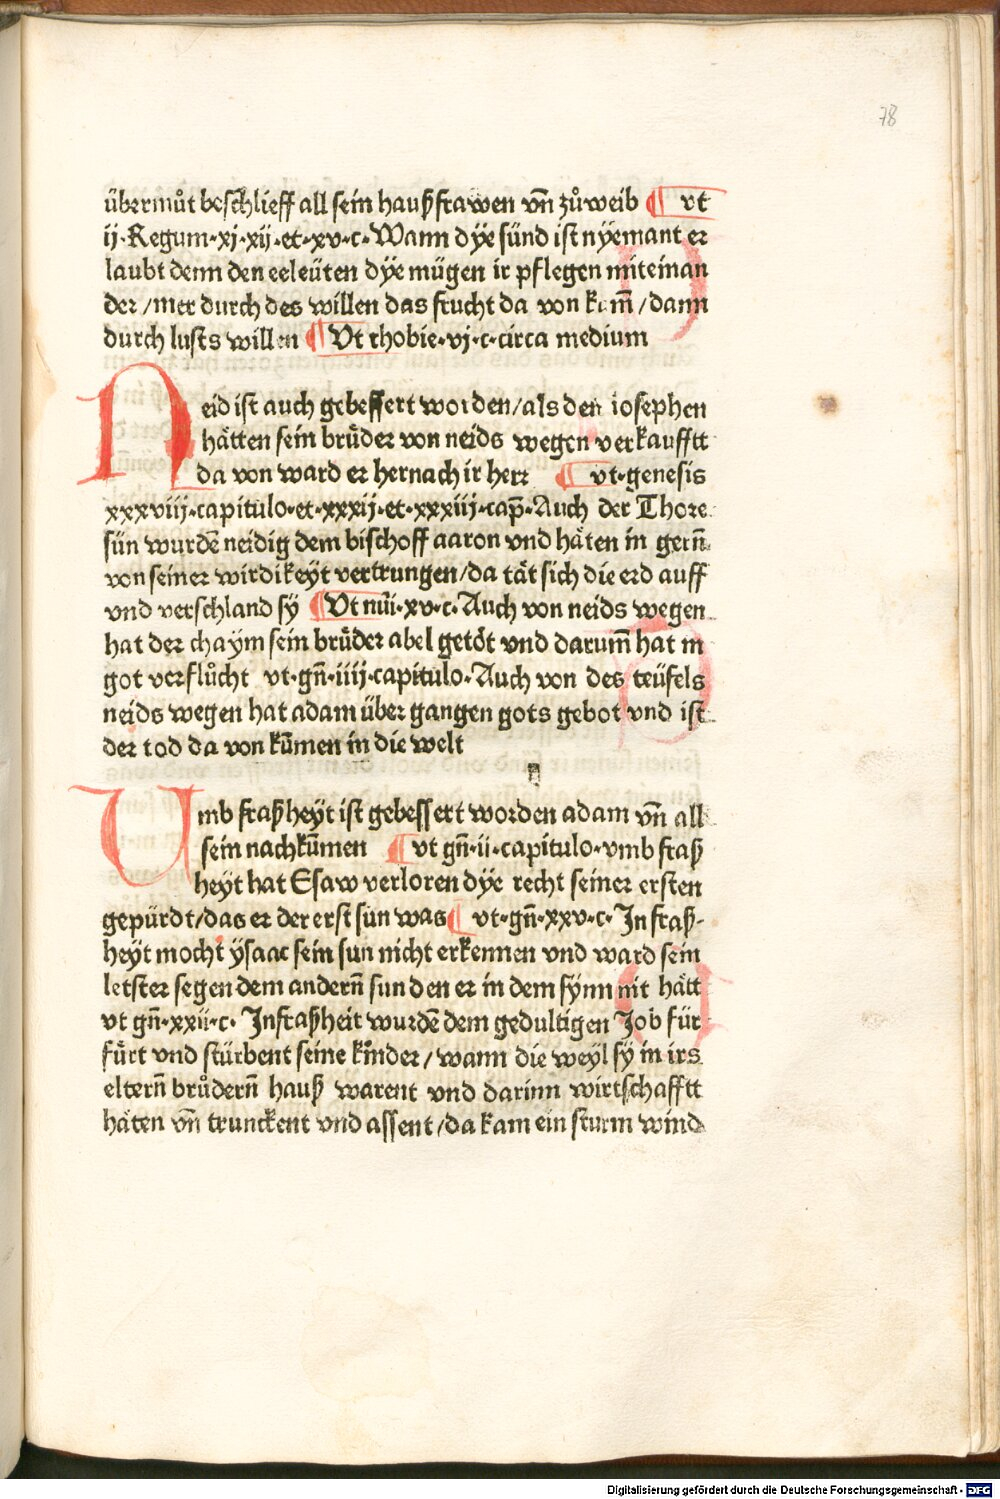 78
übermůt beschlieff all sein haußfrawen vñ zůweib ¶ vt
ij·Regum·xj·xij·et·xv·c·Wann dÿe sünd ist nÿemant er
laubt denn den eeleüten dÿe mügen ir pflegen miteinan
der/mer durch des willen das frucht da von kum̃/dann
durch lusts willen ¶ Vt thobie·vj·c·circa medium
Neid ist auch gebessert worden/als den iosephen
hätten sein brůder von neids wegen verkaufftt
da von ward er hernach ir herr ¶ vt·genesis
xxxviii·capitulo·et·xxxij·et·xxxiij·cap̃·Auch der Thore
sün wurdẽ neidig dem bischoff aaron vnd häten in gern̄
von seiner wirdikeÿt vertrungen/da tät sich die erd auff
vnd verschland sÿ ¶ Vt nũi·xv·c·Auch von neids wegen
hat der chaÿm sein brůder abel getöt vnd darum̃ hat in
got verflůcht vt·gñ·iiij·capitulo·Auch von des teüfels
neids wegen hat adam über gangen gots gebot vnd ist
der tod da von kũmen in die welt
Umb fraßheÿt ist gebessert worden adam vñ all
sein nachkũmen ¶ vt gñ·ii·capitulo·vmb fraß
heÿt hat Esaw verloren dÿe recht seiner ersten
gepürdt/das er der erst sun was ¶ vt·gñ·xxv·c·In fraß-
heÿt mocht ÿsaac sein sun nicht erkennen vnd ward sein
letster segen dem andern̄ sun den er in dem sÿnn nit hätt
vt gñ·xxii·c·Infraßheit wurdẽ dem gedultigen Job für
fůrt vnd stürbent seine kinder/wann die weÿl sÿ in irs
eltern̄ brůdern̄ hauß warent vnd darinn wirtschafftt
häten vñ trunckent vnd assent/da kam ein sturm wind
Digitalisierung gefördert durch die Deutsche Forschungsgemeinschaft - DFG